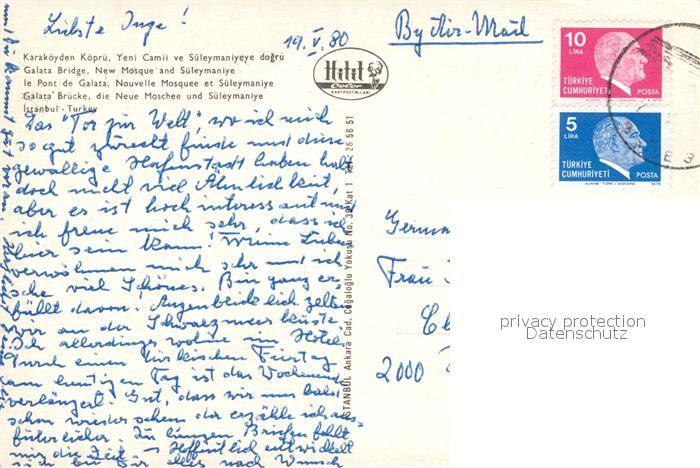 Liebste Inge!
19.V.80
By Air-Mail
Karaköyden Köprü, Yeni Camii ve Süleymaniyeye doğru
Galata Bridge, New Mosque and Süleymaniye
le Pont de Galata, Nouvelle Mosquee et Süleymaniye
Galata Brücke, die Neue Moschee und Süleymaniye
İstanbul - Turkey
Hitit
Color
KARTPOSTALLARI
10
LİRA
TÜRKİYE
CUMHURİYETİ
POSTA
5
LİRA
TÜRKİYE
CUMHURİYETİ
POSTA
Das "Tor zur Welt", wo ich mich
so gut zurecht finde und diese
gewaltige Hafenstadt haben halt
doch nicht viel Ähnlichkeit,
aber es ist hoch interessant und
ich freue mich sehr, dass ich
hier sein kann! Meine Lieben
verwöhnen mich sehr und ich
sehe viel Schönes. Bin ganz er-
füllt davon. Augenblicklich zelten
wir an der Schwarzmeerküste.
Ich allerdings wohne im Hotel.
Durch einen türkischen Feiertag
am heutigen Tag ist das Wochenende
verlängert. Gut, dass wir uns bald
schon wiedersehen da erzähle ich aus-
führlicher. Zu langen Briefen fehlt
mir die Zeit. Hoffentlich entwickelt
sich bei Dir alles nach Wunsch
İSTANBUL Ankara Cad. Cağaloğlu Yokuşu No. 39 Kat 1 Tel: 26 56 51
Germ
Frau
2000
privacy protection
Datenschutz